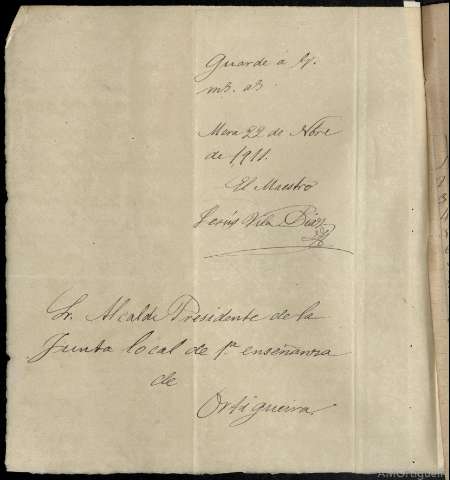 Guarde á V.
ms. as.
Mera 22 de Nbre
de 1911.
El Maestro
Jesús Vila Díaz
Sr. Alcalde Presidente de la
Junta local de 1ª enseñanza
de
Ortigueira
AMOrtigueir